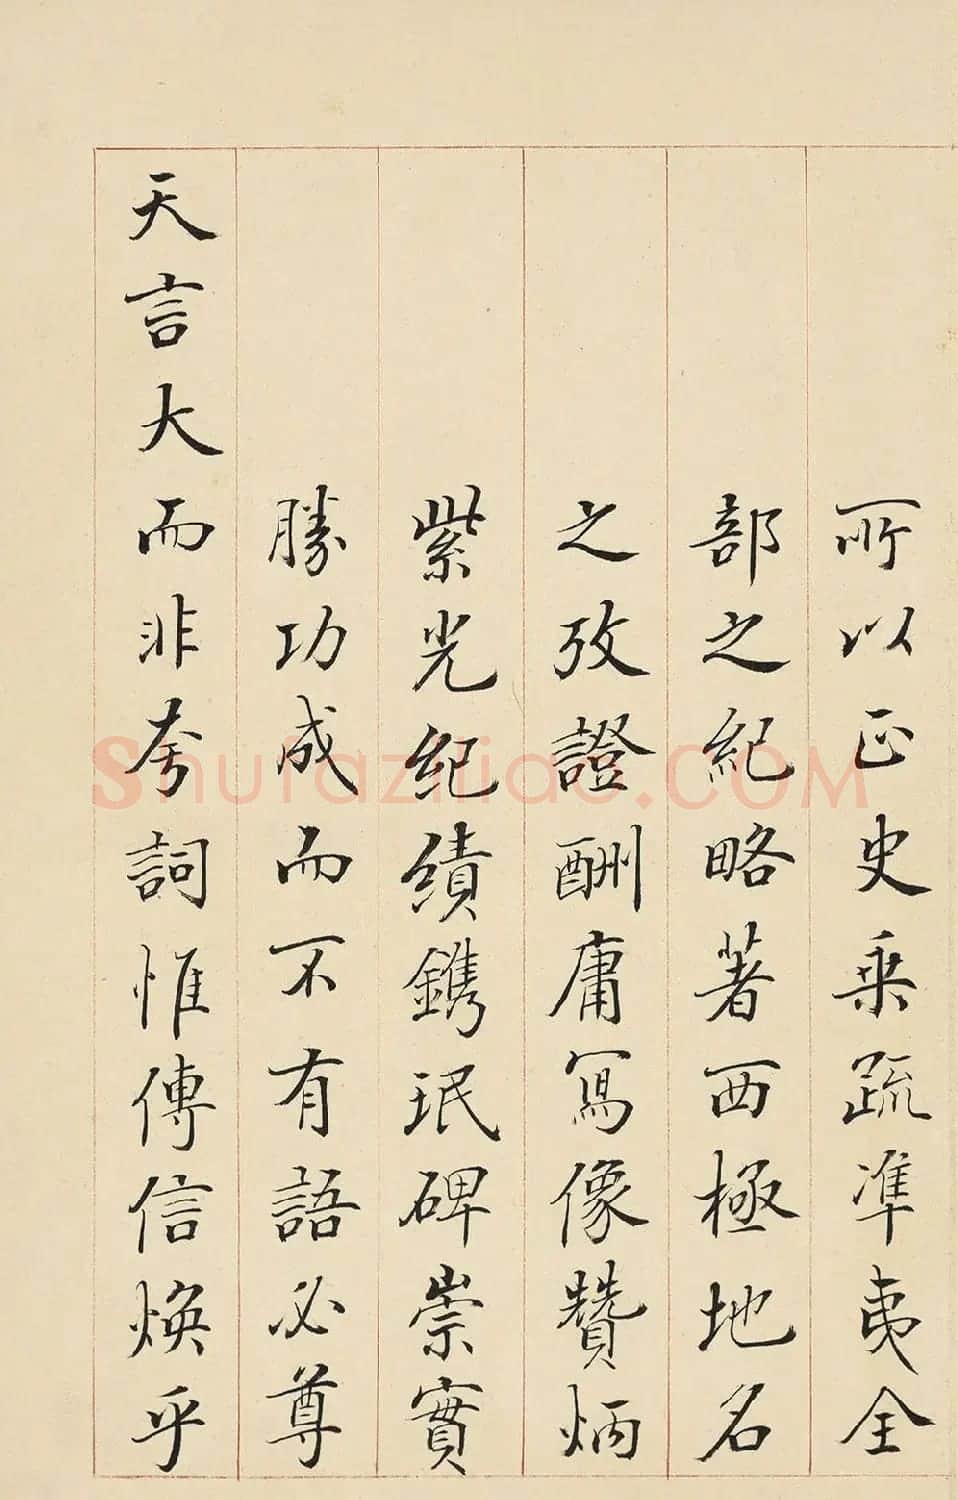 所以正史乘疏準夷全
部之紀略著西極地名
之攷證酬庸寫像贊炳
紫光紀績鐫珉碑崇實
勝功成而不有語必尊
天言大而非夸詞惟傳信煥乎
shufaziliao.COM